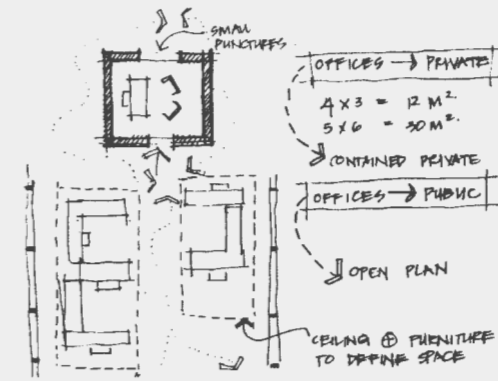 SMALL
PUNCTURES
OFFICES → PRIVATE
4 x 3 = 12 M².
5 x 6 = 30 M².
CONTAINED PRIVATE
OFFICES → PUBLIC
OPEN PLAN
CEILING ⊕ FURNITURE
TO DEFINE SPACE